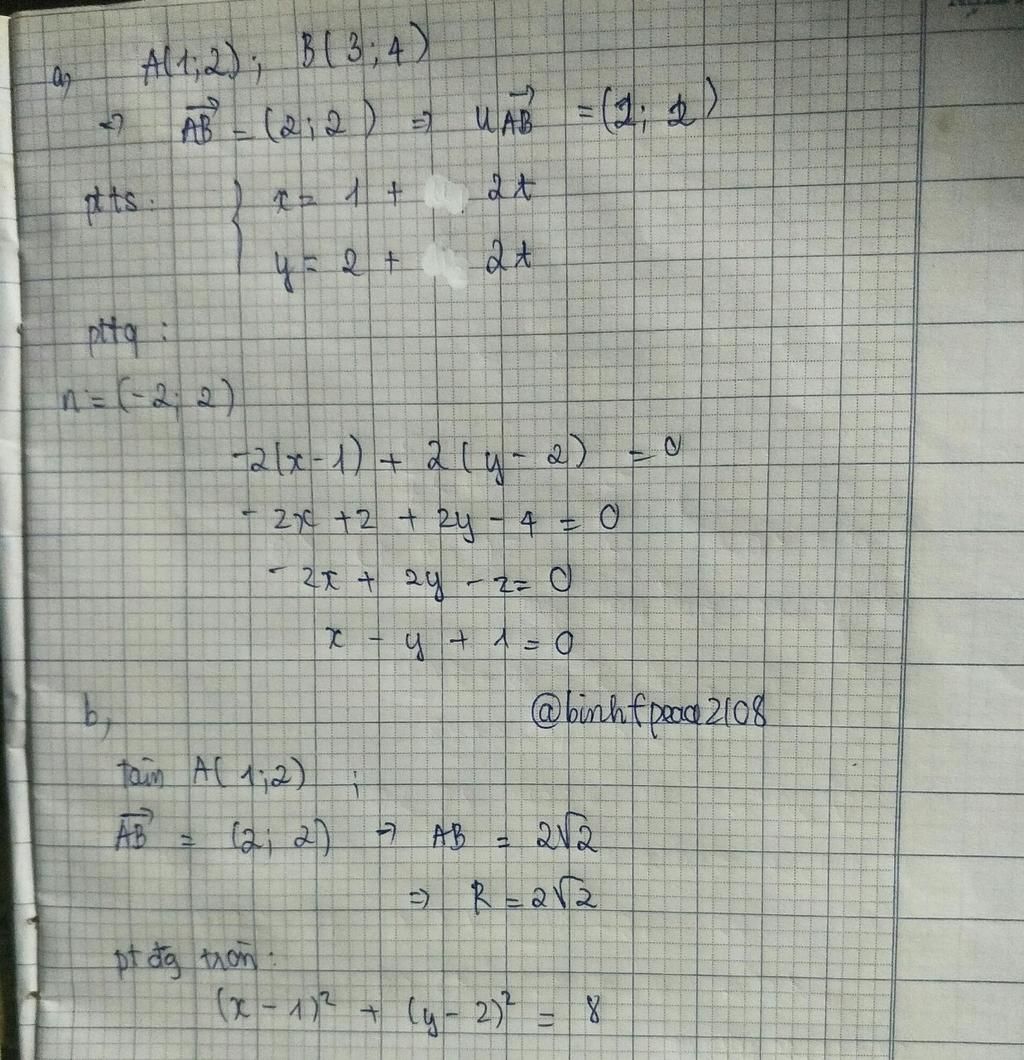 a, A(1;2); B(3;4)
=> \overrightarrow{AB} = (2;2) => u\overrightarrow{AB} = (2; 2)
ptts: { x = 1 + 2t
y = 2 + 2t
pttq :
n = (-2; 2)
-2(x-1) + 2(y-2) = 0
- 2x + 2 + 2y - 4 = 0
- 2x + 2y - 2 = 0
x - y + 1 = 0
b, @binhfpaaa2108
tâm A(1;2) ;
\overrightarrow{AB} = (2; 2) → AB = 2√2
=> R = 2√2
pt đg tròn:
(x-1)² + (y-2)² = 8